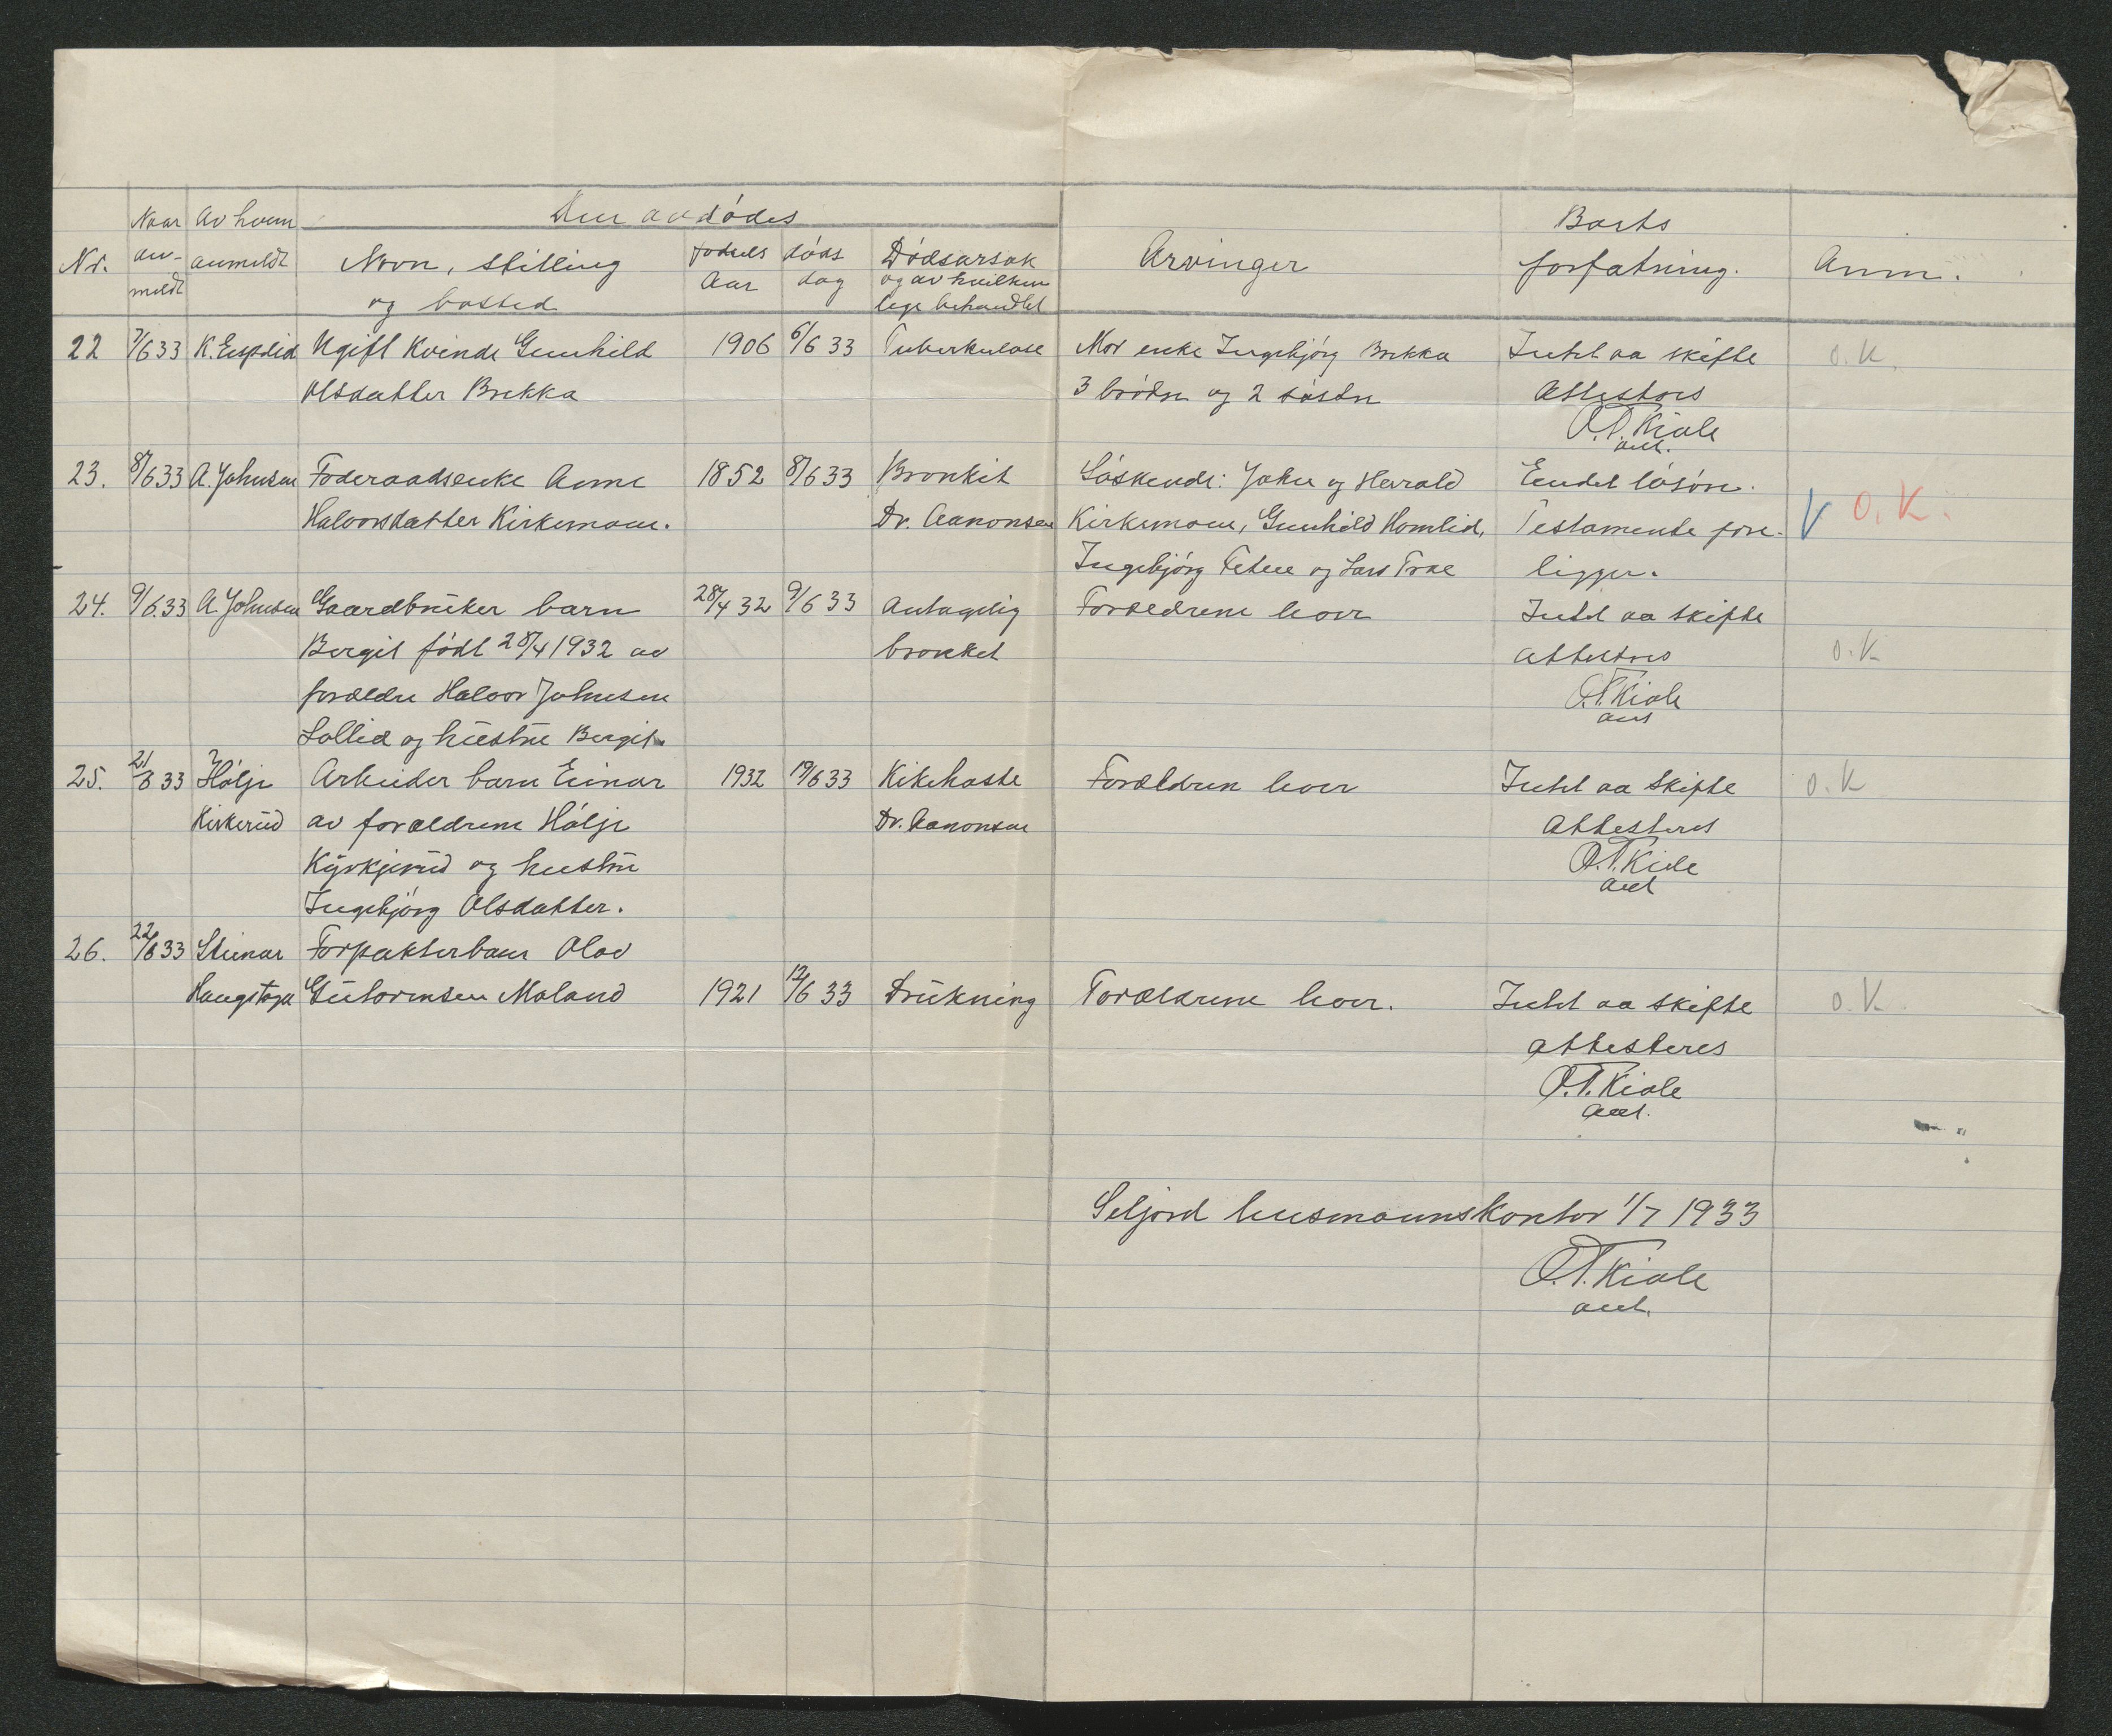 Den avdødes
Nr. Naar an- meldt Av hvem anmeldt Navn, stilling og bosted fødsels Aar døds dag Dødsarsak og av hvilken lege behandlet Arvinger Boets forfatning. Anm.
22 7/6 33 K. Espelid Ugift Kvinde Gunhild 1906 6/6 33 Tuberkulose Mor enke Ingebjørg Brekka Intet aa skifte O.K.
Olsdatter Brekka 3 brødre og 2 søstre Attesteres
O.T. Kiale
aut.
23. 8/6 33 A. Johnsen Føderaadsenke Anne 1852 8/6 33 Bronkit Søskende: John og Harald Eendel løsøre.
Halvorsdatter Kirkemoen. Dr. Aanonsen Kirkemoen, Gunhild Homlid, Testamente fore- V O.K.
Ingebjørg Teten og Lars Trae ligger.
24. 9/6.33 A. Johnsen Gaardbruker barn 28/4 32 9/6 33 Antagelig Forældrene lever Intet aa skifte
Bergit født 28/4 1932 av bronket attesteres O.K
forældre Halvor Johnsen O.T. Kiale
Lollid og hustru Bergit. aut
25. 21/6 33 Hølje Arbeider barn Einar 1932 19/6 33 Kikehoste Forældren lever Intet aa Skifte O.K
Kirkerud av forældrene Hølje Dr. Aanonsen Attesteres
Kyrkjerud og hustru O.T. Kiale
Ingebjørg Olsdatter. aut
26. 22/6 33 Steinar Forpakterbarn Olav
Haugstoga Gutormsen Moland 1921 12/6 33 Drukning Forældrene lever. Intet aa skifte O.K.
attesteres
O.T. Kiale
aut.
Seljord lensmannskontor 1/7 1933
O.T. Kiale
aut.